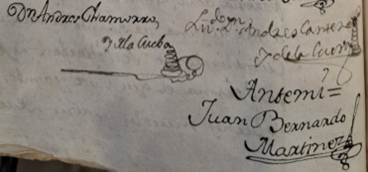 Dn Andres Chamorro
y dla Cueba
Lizdo Dn Andres Cantero
y de la Cueva
Antemi =
Juan Bernardo
Martinez